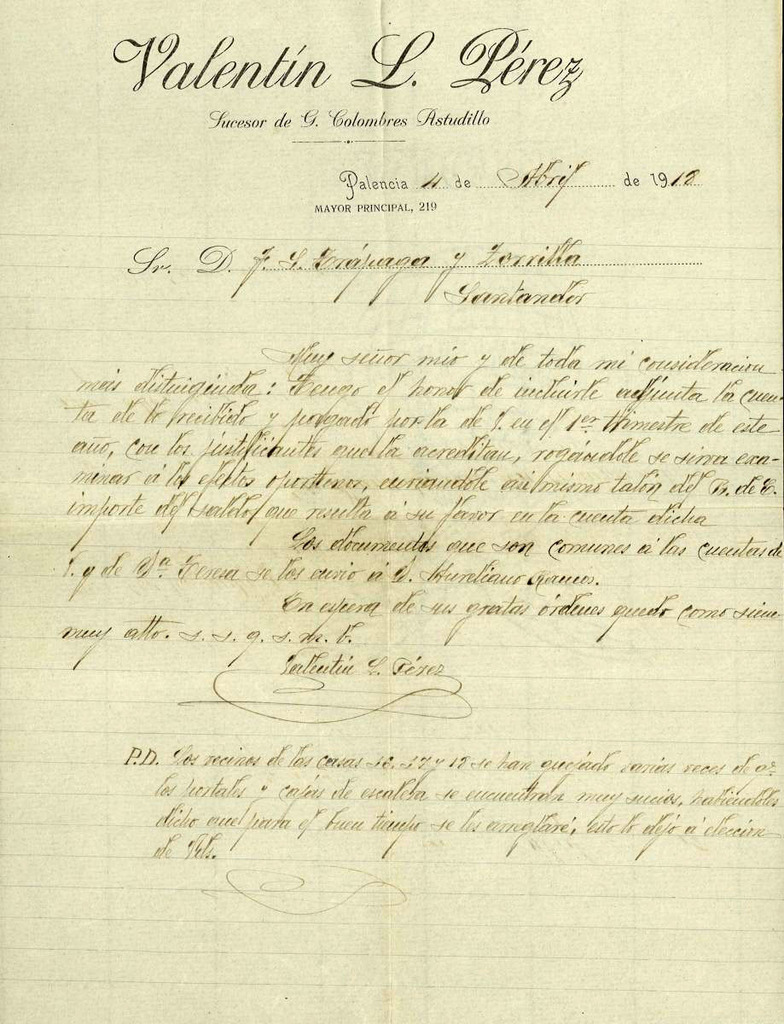 Valentín L. Pérez
Sucesor de G. Colombres Astudillo
Palencia 4 de Abril de 1912
MAYOR PRINCIPAL, 219
Sr. D. F. L. Trápaga y Zorrilla
Santander
Muy señor mio y de toda mi consideracion
mas distinguida: Tengo el honor de incluirle adjunta la cuen-
ta de lo recibido y pagado por la de V. en el 1er trimestre de este
año, con los justificantes que la acreditan, rogándole se sirva exa-
minar á los efectos oportunos, enviandole asi mismo talón del B. de E.
importe del saldo que resulta á su favor en la cuenta dicha
Los documentos que son comunes á las cuentas de
V. y de Da. Teresa se los envio á D. Aureliano Ramos.
En espera de sus gratas órdenes quedo como siem-
muy atto. s. s. q. s. m. b.
Valentin L. Pérez
P.D. Los vecinos de las casas y 12 se han quejado varias veces de qe.
los portales y cajas de escalera se encuentran muy sucios, habiendoles
dicho que para el buen tiempo se les arreglaré, esto lo dejo á eleccion
de Vds.